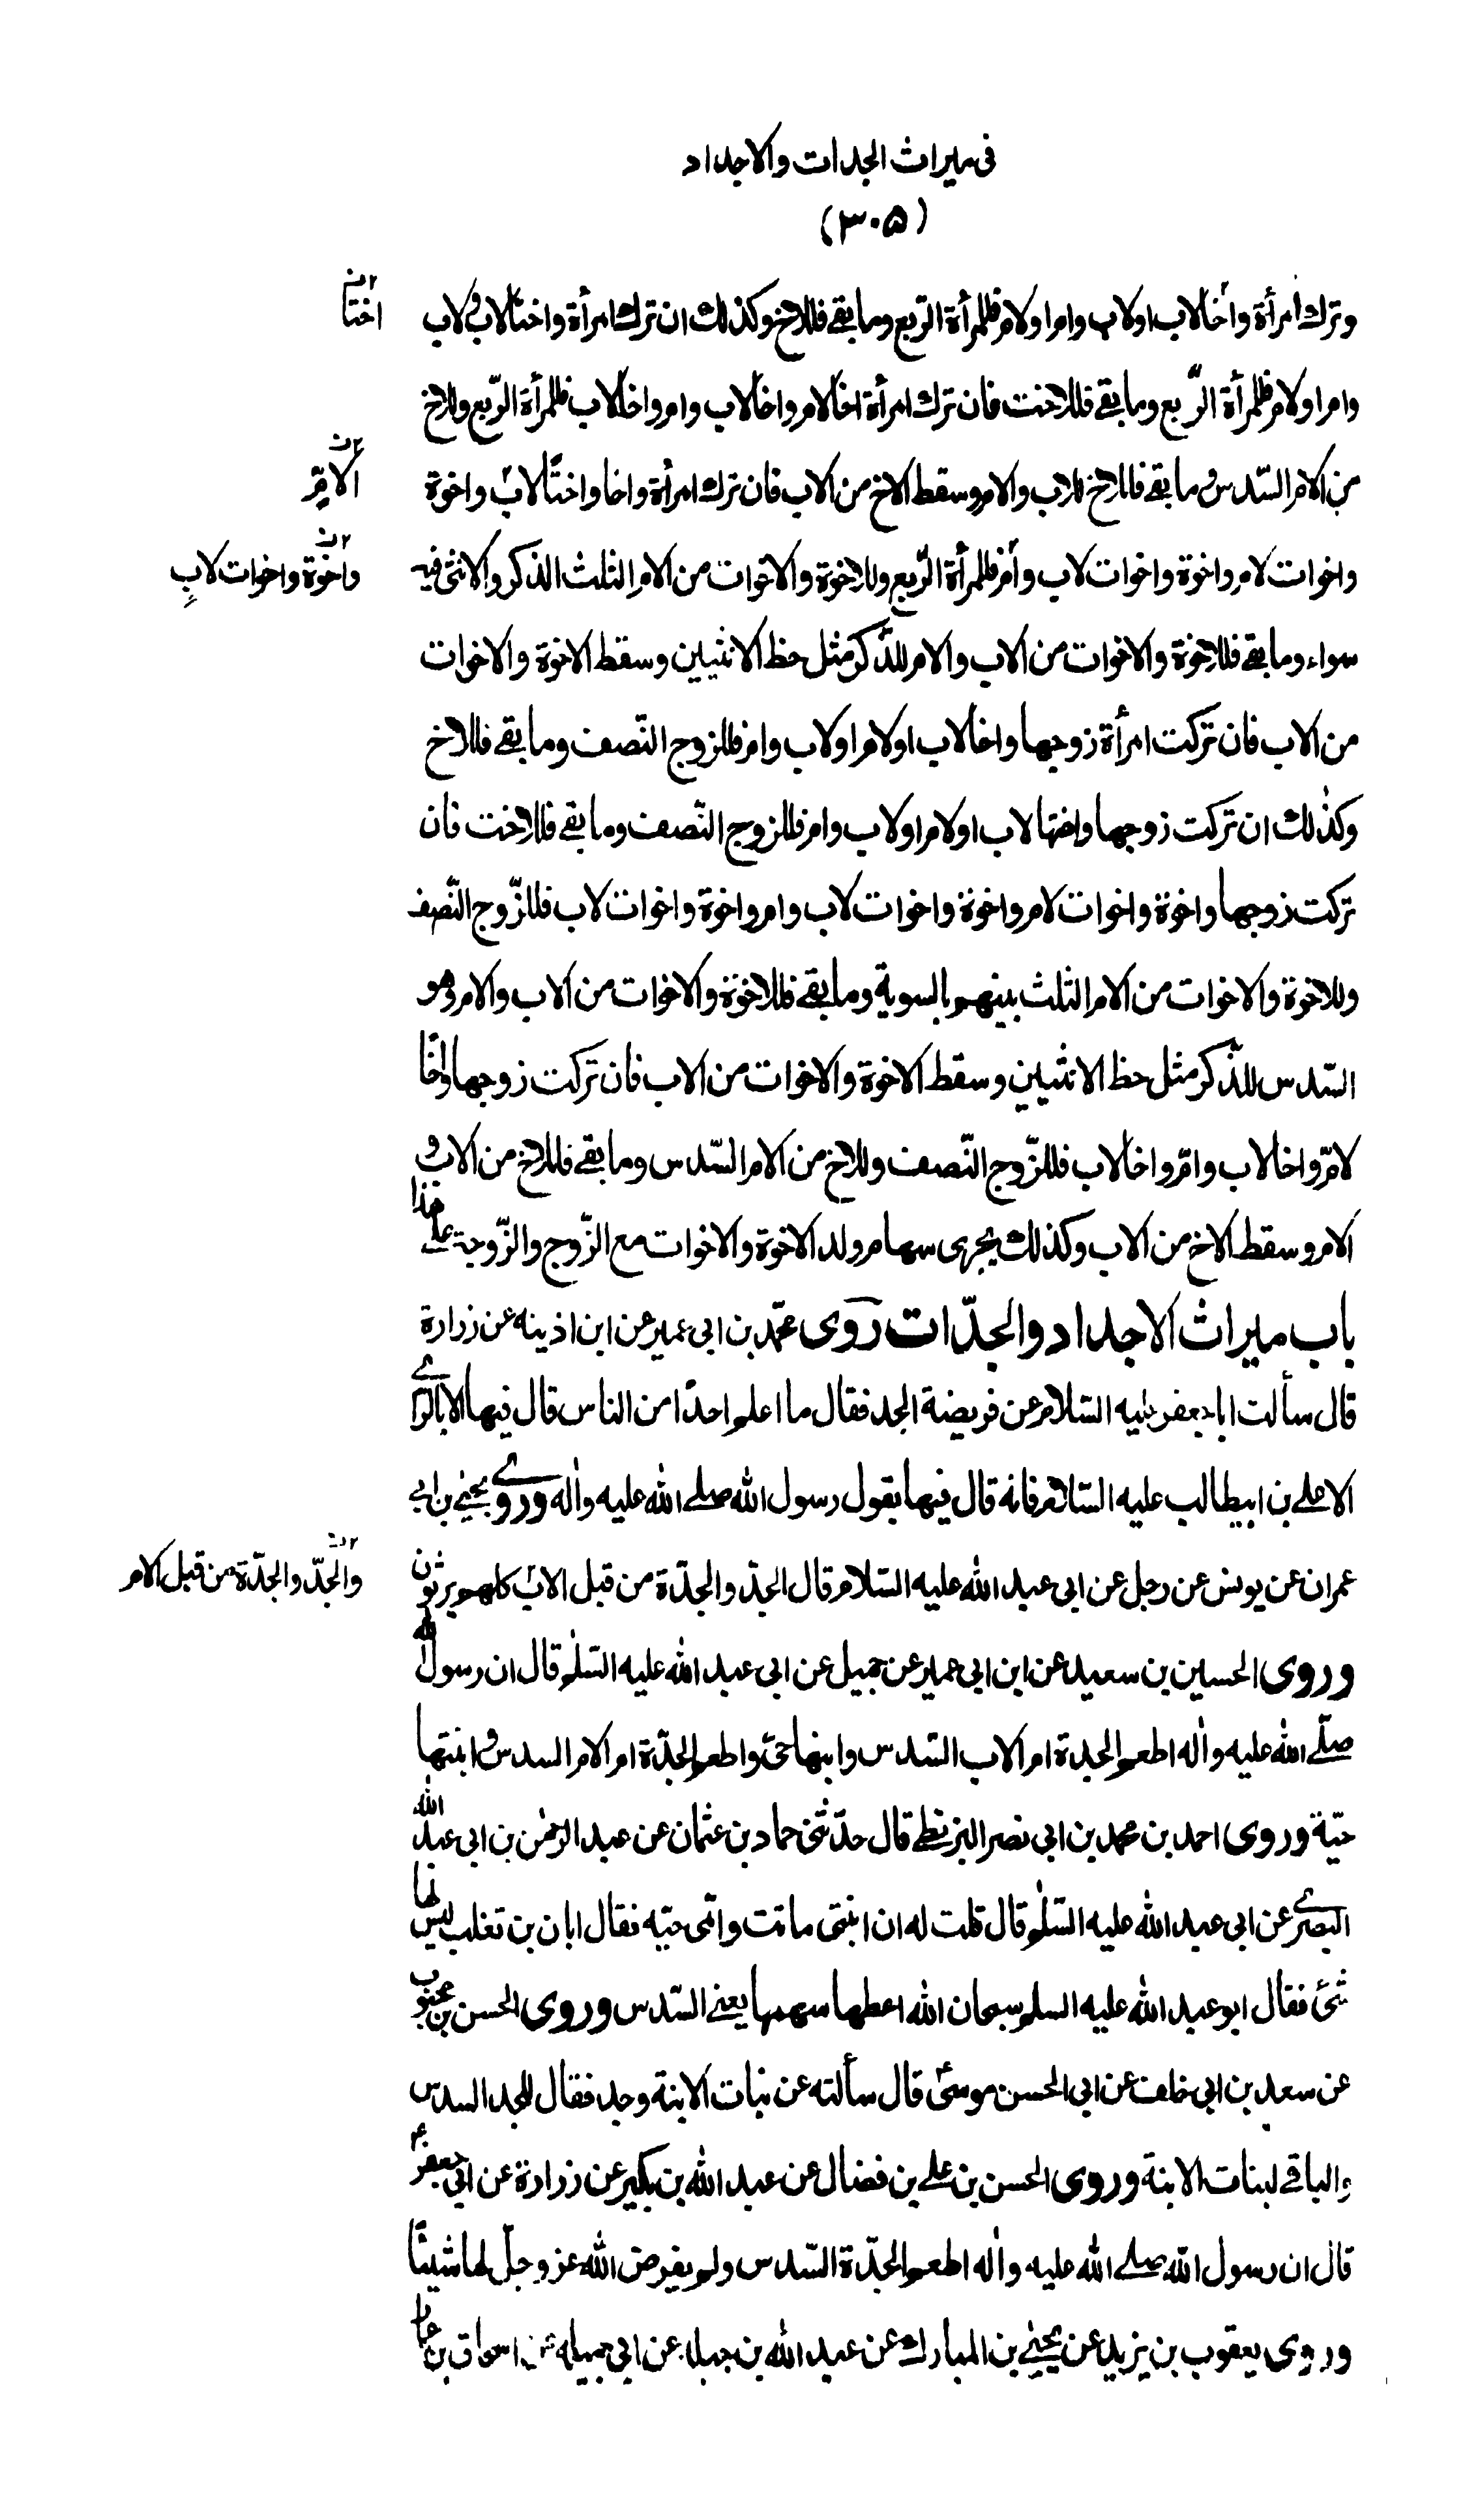 فى ميراث الجدات والاجداد
(٣٠۵)
وترك امرأة واخا لاب او لاب وام او لام فللمرأة الربع وما بقے فللاخ وكذلك ان ترك امرأة واختا لاب او لاب
اختاً
وام او لام فللمرأة الرّبع وما بقے فللاخت فان ترك امرأة اخا لام واخا لاب وام واخا لاب فللمرأة الرّبع وللاخ
من الام السّدس وما بقے فللاخ للاب والام وسقط الاخ من الاب فان ترك امرأة واخا واختًا لاب واخوة
لامّ
واخوات لام واخوة واخوات لاب وأم فللمرأة الرّبع وللاخوة والاخوات من الام الثلث الذكر والانثى فيه
واخوة واخوات لابٍ
سواء وما بقے فللاخوة والاخوات من الاب والام للذّكر مثل حظ الانثيين وسقط الاخوة والاخوات
من الاب فان تركت امرأة زوجها واخا لاب او لام او لاب وام فللزوج النّصف وما بقے فللاخ
وكذٰلك ان تركت زوجها واختها لاب او لام او لاب وام فللزوج النّصف وما بقے فللاخت فان
تركت زوجها واخوة واخوات لام واخوة واخوات لاب وام واخوة واخوات لاب فللزّوج النّصف
وللاخوة والاخوات من الام الثلث بينهم بالسوية وما بقے فللاخوة والاخوات من الاب والام وهو
السّدس للذّكر مثل حظ الانثيين وسقط الاخوة والاخوات من الاب فان تركت زوجها واخًا
لامّ واخا لاب وامّ واخا لاب فللزّوج النّصف وللاخ من الام السّدس وما بقے فللاخ من الاب و
الام وسقط الاخ من الاب وكذلك يجرى سهام ولد الاخوة والاخوات مع الزّوج والزّوجة علے هذا
باب ميراث الاجداد والجدّات روى محمّد بن ابى عمير عن ابن اذينه عن زرارة
قال سألت ابا جعفر عليه السّلام عن فريضة الجد فقال ما اعلم احدًا من الناس قال فيها الا بالرّاے
الا علے بن ابيطالب عليه السّلام فانه قال فيها بقول رسول الله صلے الله عليه واٰله وروے يحيے بن ابى
عمران عن يونس عن رجل عن ابى عبد الله عليه السّلام قال الجدّ والجدّة من قبل الاب كلهم يرثون
والجدّ والجدّة من قبل الام
وروى الحسين بن سعيد عن ابن ابى عمير عن جميل عن ابى عبد الله عليه السّلٰم قال ان رسول الله
صلّے الله عليه واٰله اطعم الجدة ام الاب السّدس وابنها حىّ واطعم الجدّة ام الام السدس وابنتها
حيّة وروى احمد بن محمد بن ابى نصر البزنطے قال حدّثنى حماد بن عثمان عن عبد الرحمٰن بن ابى عبد الله
البصرے عن ابى عبد الله عليه السّلٰم قال قلت له ان ابنتى ماتت وامّى حيّه فقال ابان بن تغلب ليس لها
شئ فقال ابو عبد الله عليه السلم سبحان الله اعطها سهمها يعنے السّدس وروى الحسن بن محبوب
عن سعد بن ابى خلف عن ابى الحسن موسىٰ قال سألته عن بنات الابنة وجد فقال للجد السدس
والباقے لبنات الابنة وروى الحسن بن علے بن فضال عن عبد الله بن بكير عن زرارة عن ابى جعفر
قال ان رسول الله صلے الله عليه واٰله اطعم الجدّة السّدس ولم يفرض الله عز وجلّ لها شيئًا
وروى يعقوب بن يزيد عن يحيے بن المبارك عن عبد الله بن جبله عن ابى جميله عن اسحاق بن عمار